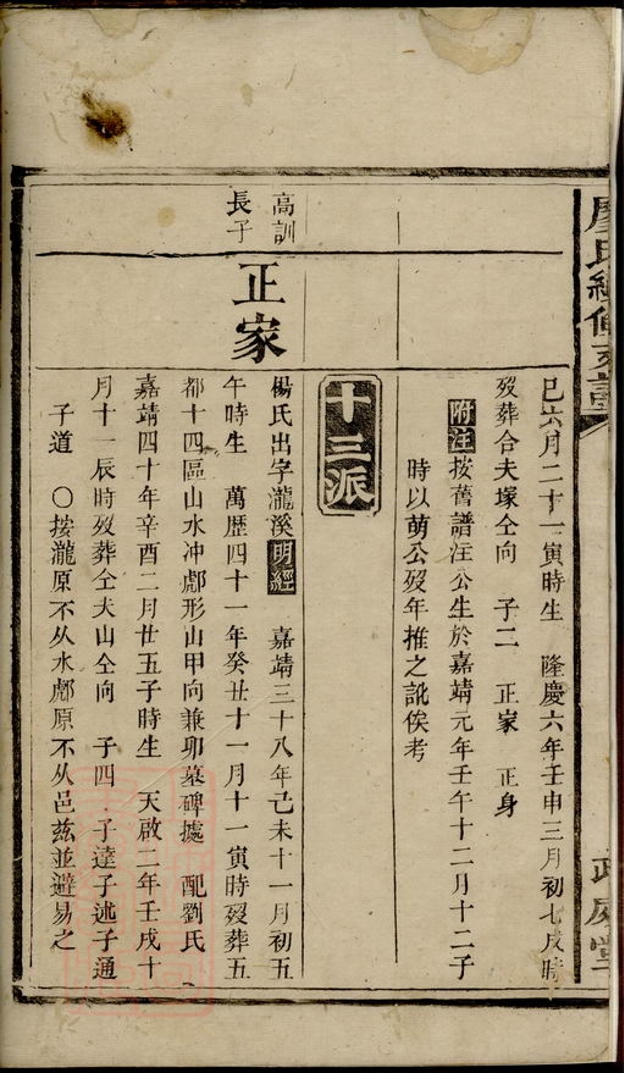 廖氏續修支譜
武威堂
巳六月二十一寅時生　隆慶六年壬申三月初七戌時
歿葬合夫塚仝向　子二　正家　正身
附注按舊譜注公生於嘉靖元年壬午十二月十二子
時以萌公歿年推之訛俟考
十三派
高訓
長子
正家
楊氏出字瀧溪明經　嘉靖三十八年己未十一月初五
午時生　萬歷四十一年癸丑十一月十一寅時歿葬五
都十四區山水冲鄌形山甲向兼卯墓碑據　配劉氏
嘉靖四十年辛酉二月廿五子時生　天啟二年壬戌十
月十一辰時歿葬仝夫山仝向　子四　子達子述子通
子道　○按瀧原不从水鄌原不从邑兹並避易之